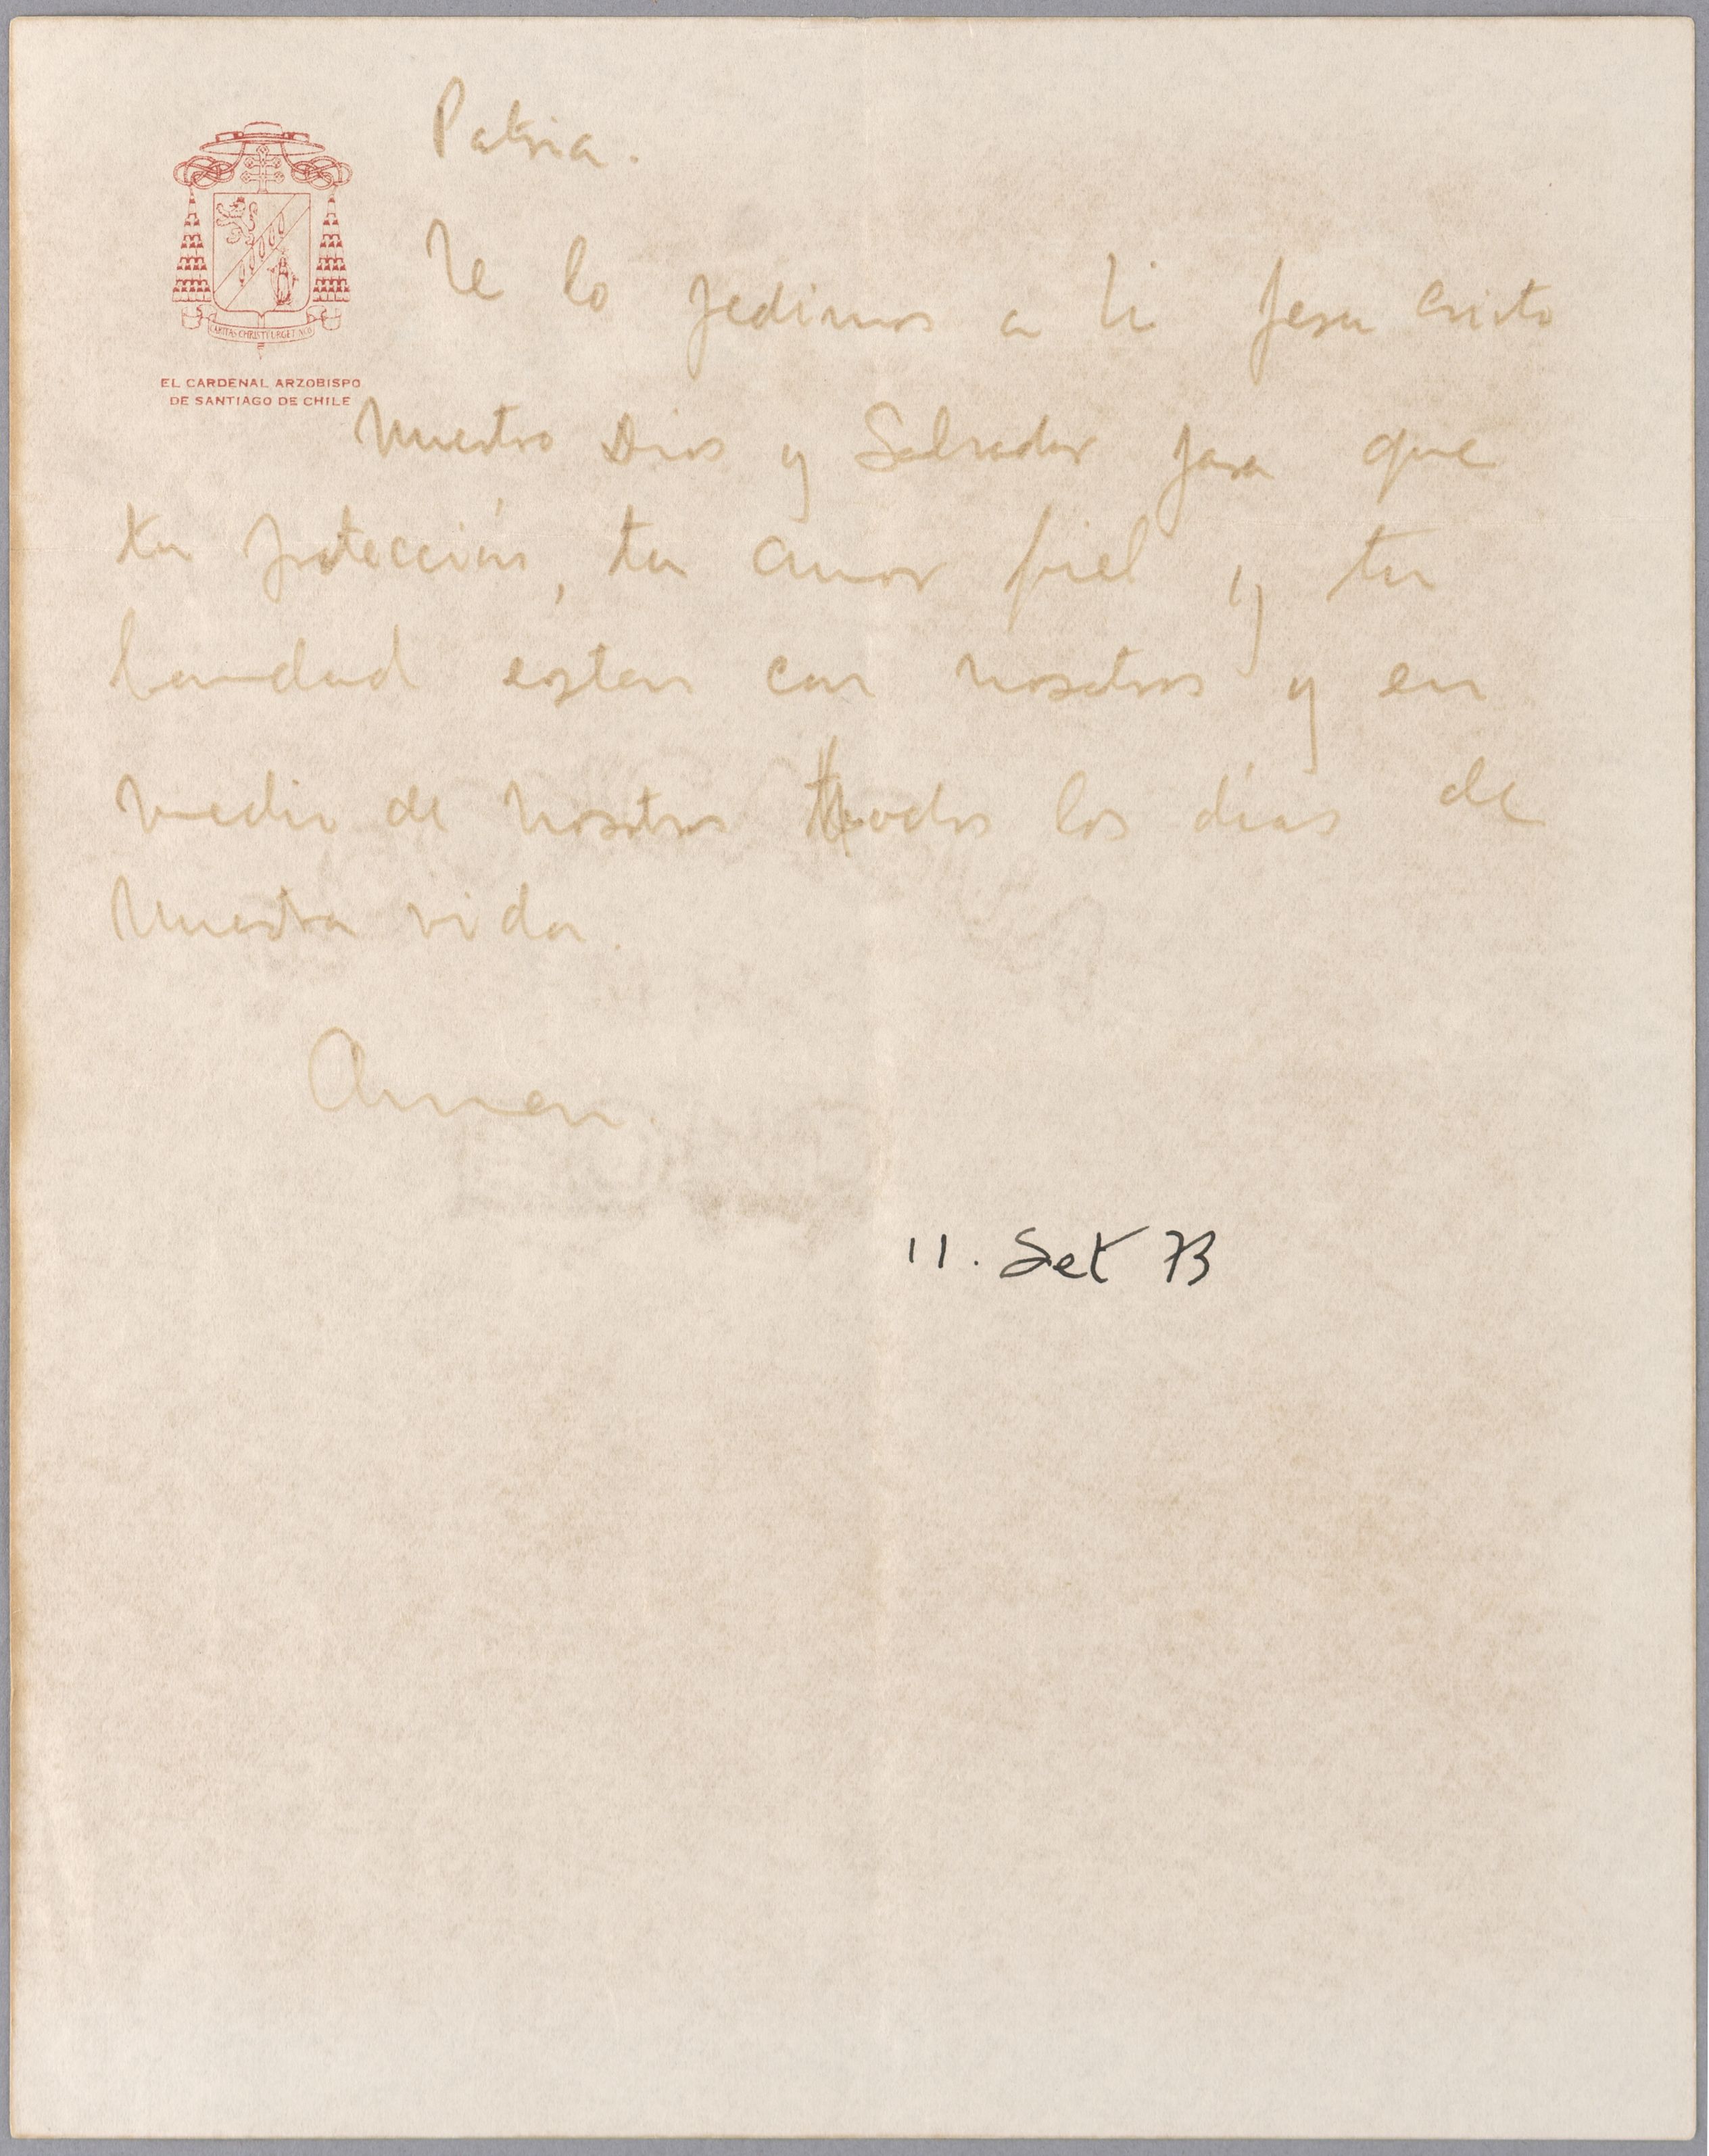 Patria.
Te lo pedimos a ti Jesu cristo
CARITAS CHRISTI URGET NOS
EL CARDENAL ARZOBISPO
DE SANTIAGO DE CHILE
Nuestro Dios y Salvador para que
tu protección, tu amor fiel y tu
bondad esten con nosotros y en
medio de nosotros todos los días de
nuestra vida.
Amen.
11. Set 73